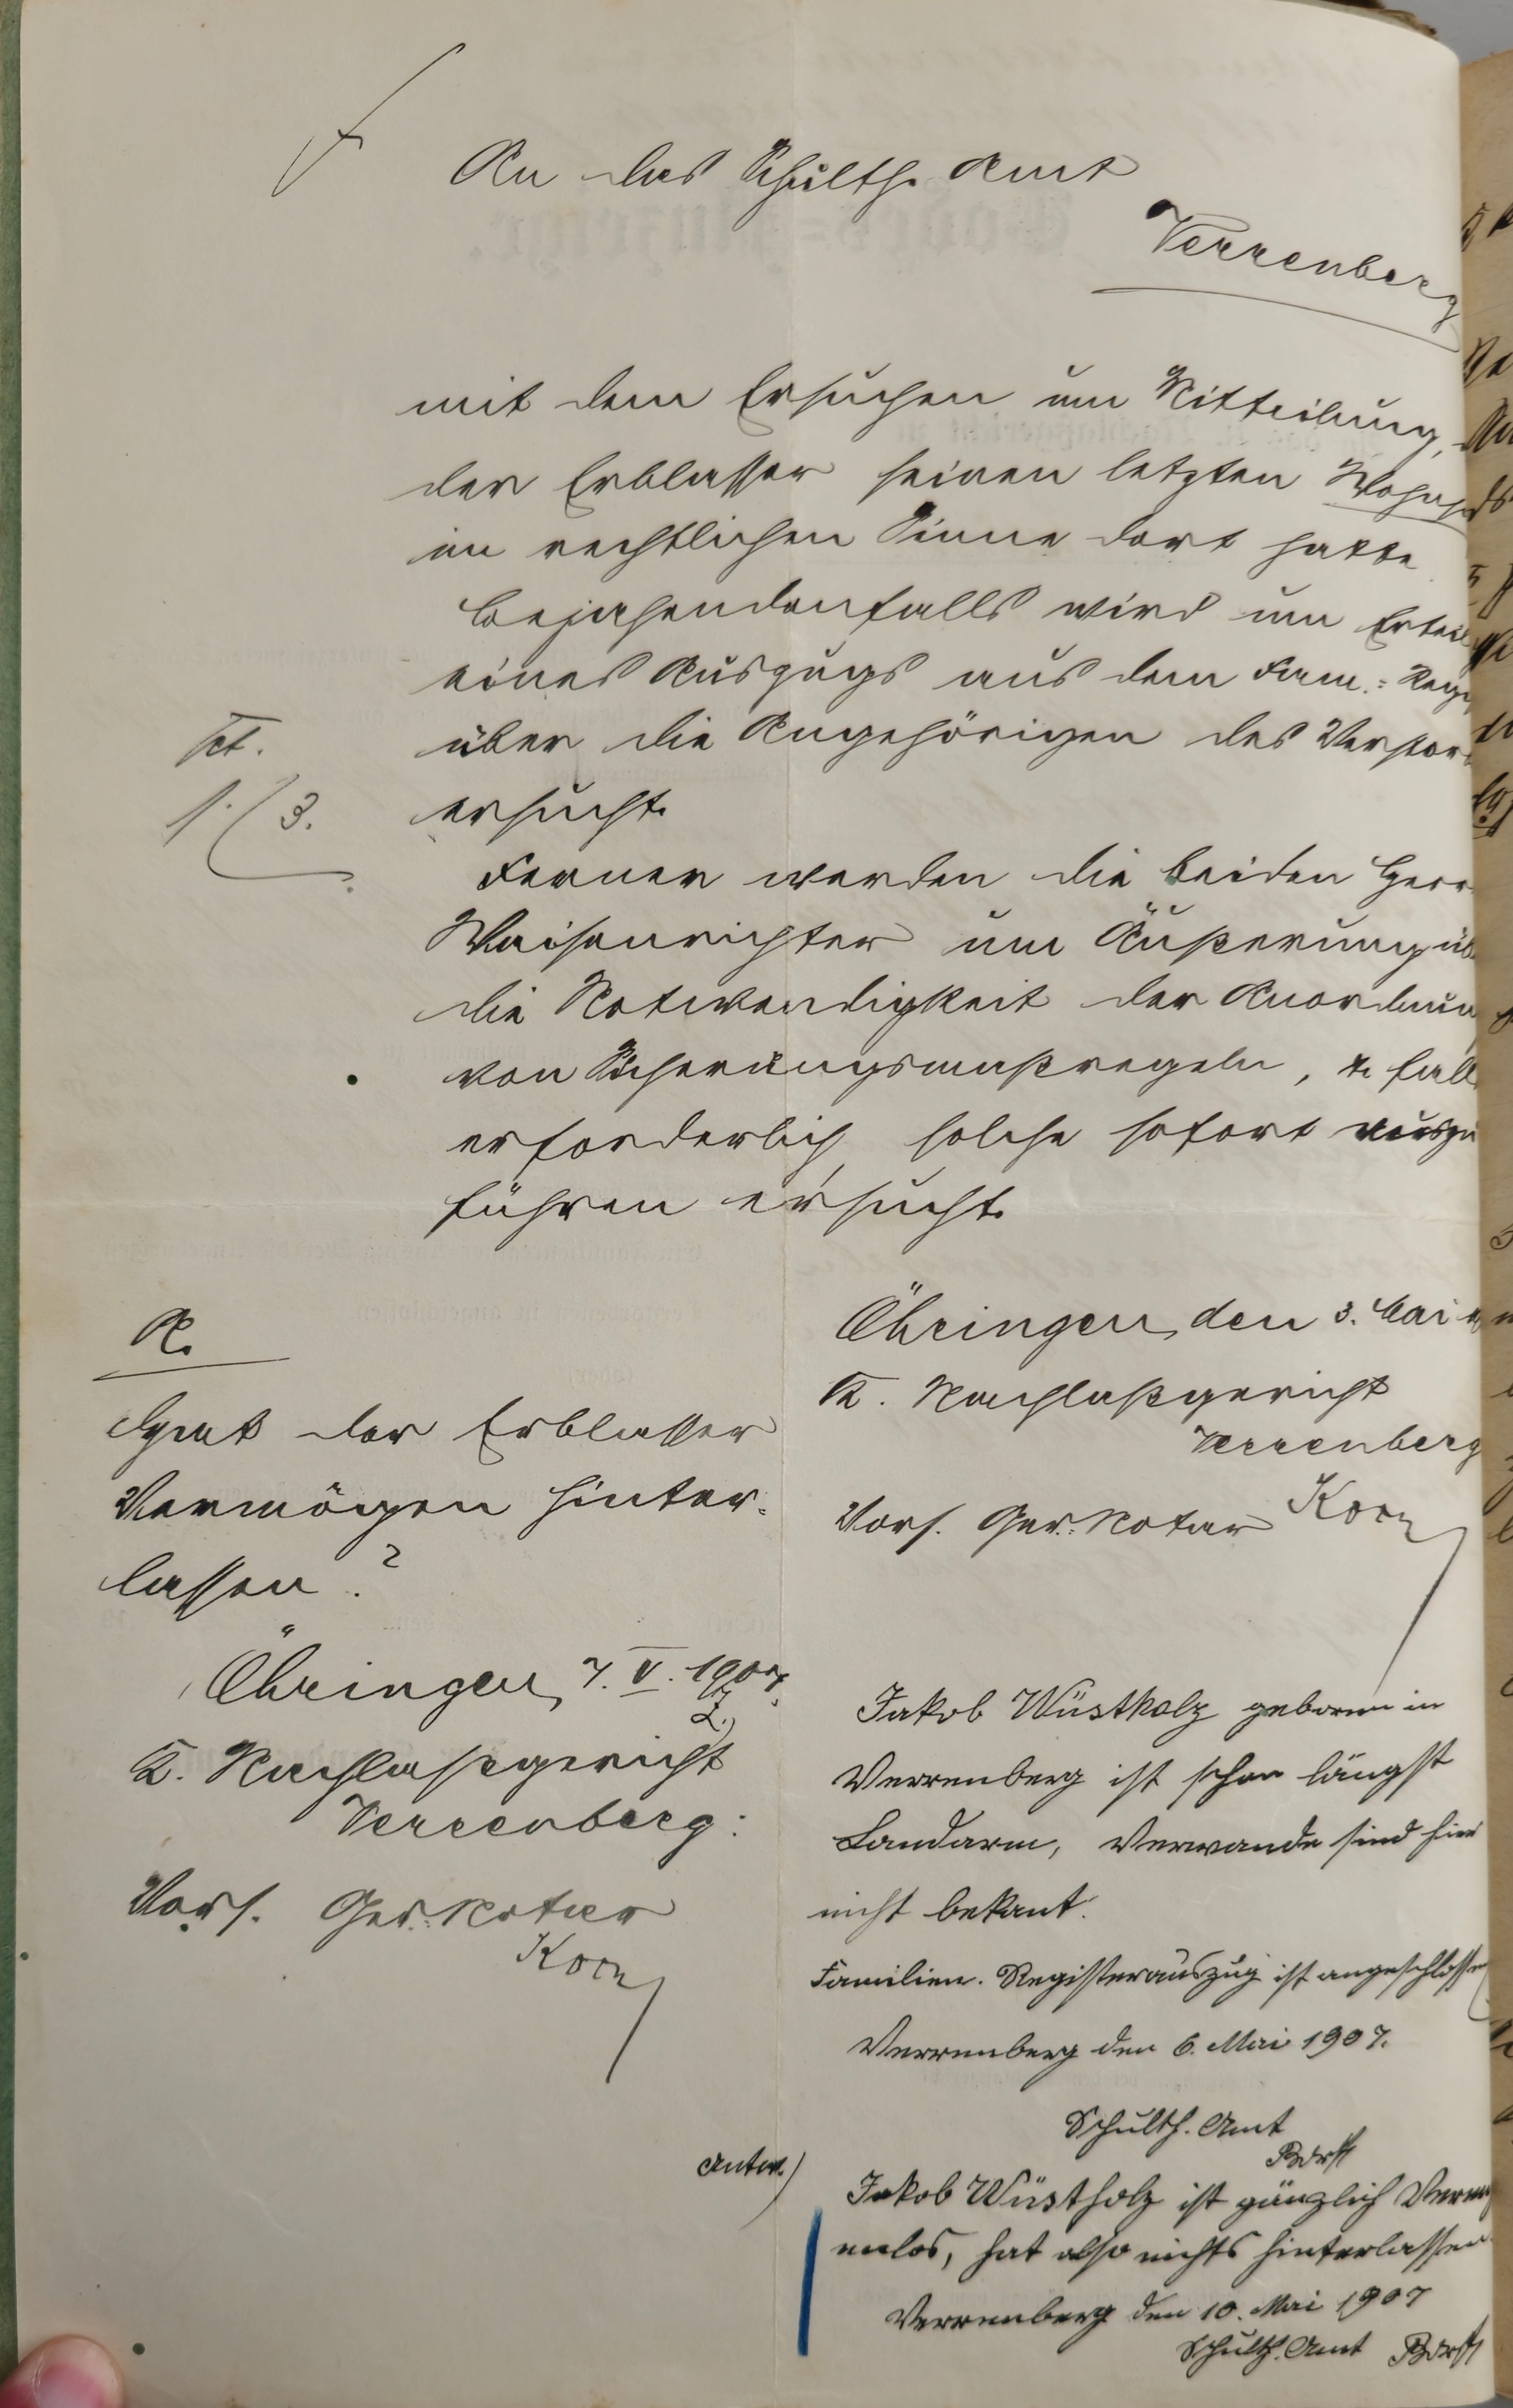 An das Schulth. Amt
Verrenberg
mit dem Ersuchen um Mitteilung,
der Erblasser seinen letzten Wohns
im rechtlichen Sinne dort hatte
Bejahendenfalls wird um Erteil
eines Auszugs aus dem Fam.-Reg
über die Angehörigen des Verstor
ersucht.
Ferner werden die beiden Herr
Waisenrichter um Äußerung üb
die Notwendigkeit der Anordnun
von Sicherungsmaßregeln, & fall
erforderlich, solche sofort auszu
führen ersucht.
1. / 3.
Öhringen, den 3. Mai
K. Nachlaßgericht
Verrenberg
Vors. Ger.-Notar Korn
R.
Hat der Erblasser
Vermögen hinter-
lassen?
Öhringen, 7. V. 1907.
K. Nachlaßgericht
Verrenberg:
Vors. Ger.-Notar
Korn
Jakob Wüstholz geboren in
Verrenberg ist schon längst
Landarm, Verwande sind hier
nicht bekant.
Familien. Registerauszug ist angeschlossen
Verrenberg den 6. Mai 1907.
Schulth. Amt
Borst
Antw.)
Jakob Wüstholz ist gänzlich Verm
enlos, hat also nichts hinterlassen
Verrenberg den 10. Mai 1907
Schulth. Amt Borst